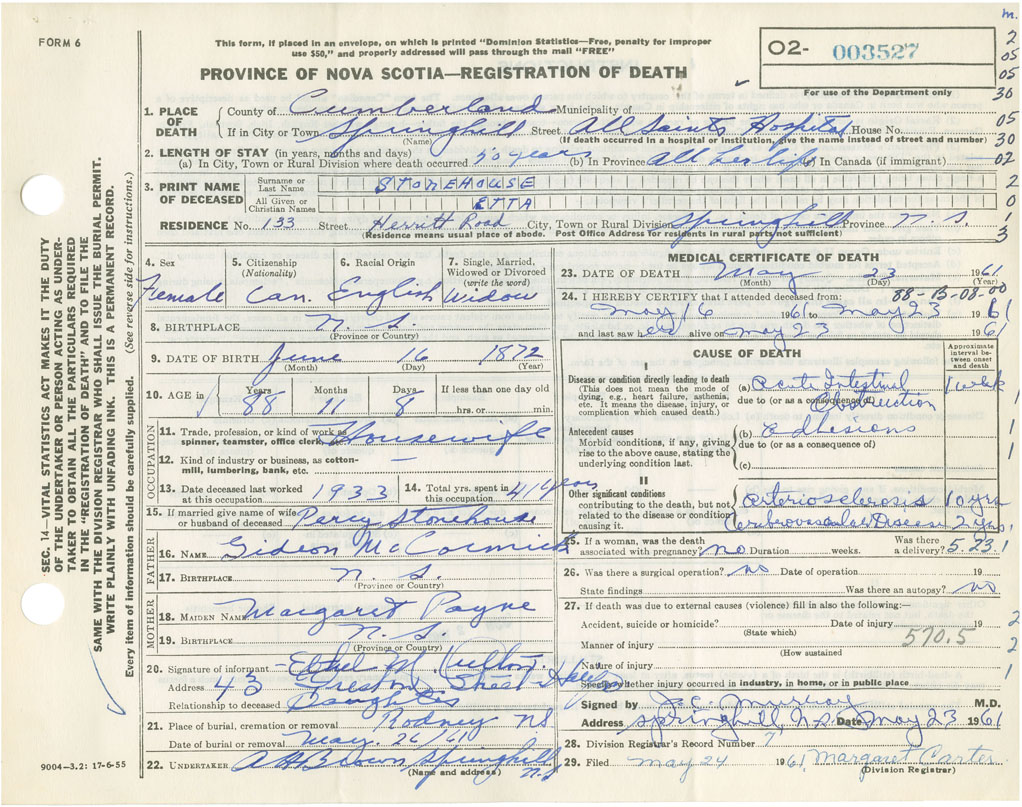 m.
FORM 6
This form, if placed in an envelope, on which is printed "Dominion Statistics—Free, penalty for improper
use $50," and properly addressed will pass through the mail "FREE"
PROVINCE OF NOVA SCOTIA—REGISTRATION OF DEATH
O2- 003527
For use of the Department only
2
05
05
30
05
30
02
2
0
1
3
1. PLACE OF DEATH County of Cumberland Municipality of
If in City or Town Springhill Street All Saints Hospital House No.
(Name) (If death occurred in a hospital or institution, give the name instead of street and number)
2. LENGTH OF STAY (in years, months and days)
(a) In City, Town or Rural Division where death occurred 50 years (b) In Province All her life In Canada (if immigrant)
3. PRINT NAME OF DECEASED Surname or Last Name STONEHOUSE
All Given or Christian Names ETTA
RESIDENCE No. 133 Street Herritt Road City, Town or Rural Division Springhill Province N.S.
(Residence means usual place of abode. Post Office Address for residents in rural parts not sufficient)
SEC. 14—VITAL STATISTICS ACT MAKES IT THE DUTY
OF THE UNDERTAKER OR PERSON ACTING AS UNDER-
TAKER TO OBTAIN ALL THE PARTICULARS REQUIRED
IN THE "REGISTRATION OF DEATH" AND TO FILE THE
SAME WITH THE DIVISION REGISTRAR WHO SHALL ISSUE THE BURIAL PERMIT.
WRITE PLAINLY WITH UNFADING INK. THIS IS A PERMANENT RECORD.
Every item of information should be carefully supplied. (See reverse side for instructions.)
4. Sex Female
5. Citizenship (Nationality) Can.
6. Racial Origin English
7. Single, Married, Widowed or Divorced (write the word) Widow
8. BIRTHPLACE N.S.
(Province or Country)
9. DATE OF BIRTH June 16 1872
(Month) (Day) (Year)
10. AGE in Years 88 Months 11 Days 8 If less than one day old hrs. or min.
OCCUPATION
11. Trade, profession, or kind of work as spinner, teamster, office clerk, Housewife
12. Kind of industry or business, as cotton-mill, lumbering, bank, etc. —
13. Date deceased last worked at this occupation 1933
14. Total yrs. spent in this occupation 41 years
15. If married give name of wife or husband of deceased Percy Stonehouse
FATHER
16. NAME Gideon McCormick
17. BIRTHPLACE N.S.
(Province or Country)
MOTHER
18. MAIDEN NAME Margaret Payne
19. BIRTHPLACE N.S.
(Province or Country)
20. Signature of informant Ethel M.
Address 43 Preston Street
Relationship to deceased Daughter
21. Place of burial, cremation or removal Rodney NS
Date of burial or removal May 26/61
22. UNDERTAKER A H Brown Springhill N.S.
(Name and address)
9004—3.2: 17-6-55
MEDICAL CERTIFICATE OF DEATH
23. DATE OF DEATH May 23 1961
(Month) (Day) (Year)
88-B-08-00
24. I HEREBY CERTIFY that I attended deceased from:
May 16 1961 to May 23 1961
and last saw her alive on May 23 1961
CAUSE OF DEATH
Approximate interval between onset and death
I
Disease or condition directly leading to death
(This does not mean the mode of dying, e.g., heart failure, asthenia, etc. It means the disease, injury, or complication which caused death.)
(a) Acute Intestinal Obstruction 1 week
due to (or as a consequence of)
Antecedent causes
Morbid conditions, if any, giving rise to the above cause, stating the underlying condition last.
(b) Adhesions
due to (or as a consequence of)
(c)
II
Other significant conditions contributing to the death, but not related to the disease or condition causing it.
Arteriosclerosis 10 yrs
Cerebrovascular Disease 2 yrs.
1
1
1
1
25. If a woman, was the death associated with pregnancy? no Duration weeks. Was there a delivery? 5.23.1
26. Was there a surgical operation? No Date of operation 19
State findings Was there an autopsy? No
27. If death was due to external causes (violence) fill in also the following:—
Accident, suicide or homicide? Date of injury 19 2
(State which)
570.5
Manner of injury 2
(How sustained
Nature of injury 1
Specify whether injury occurred in industry, in home, or in public place
Signed by M.D.
Address Springhill, N.S. Date May 23 1961
28. Division Registrar's Record Number 7
29. Filed May 24 1961 Margaret Carter
(Division Registrar)